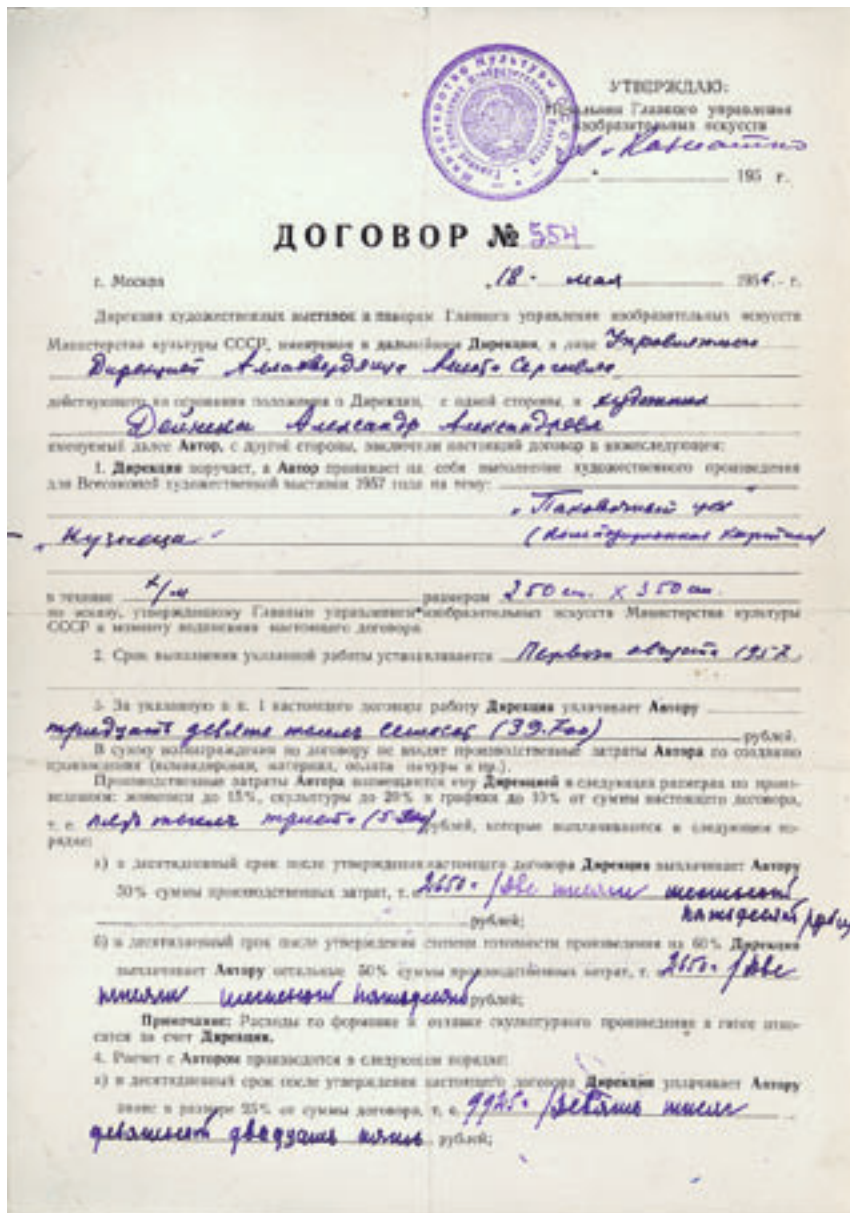 Министерство Культуры СССР
УТВЕРЖДАЮ:
Начальник Главного управления
изобразительных искусств
195 г.
ДОГОВОР № 554
г. Москва „18" мая 1956 г.
Дирекция художественных выставок и панорам Главного управления изобразительных искусств
Министерства культуры СССР, именуемая в дальнейшем Дирекция, в лице Управляющего
Дирекцией
действующего на основании положения о Дирекции, с одной стороны, и художник
Дейнека Александр Александрович
именуемый далее Автор, с другой стороны, заключили настоящий договор в нижеследующем:
1. Дирекция поручает, а Автор принимает на себя выполнение художественного произведения
для Всесоюзной художественной выставки 1957 года на тему:
(композиционная картина)
„Кузнецы"
в технике х/м размером 250 см. х 350 см.
по эскизу, утвержденному Главным управлением изобразительных искусств Министерства культуры
СССР к моменту подписания настоящего договора.
2. Срок выполнения указанной работы устанавливается Первого августа 1957
3. За указанную в п. 1 настоящего договора работу Дирекция уплачивает Автору
тридцать девять тысяч семьсот (39.700) рублей.
В сумму вознаграждения по договору не входят производственные затраты Автора по созданию
произведения (командировки, материал, оплата натуры и пр.).
Производственные затраты Автора возмещаются ему Дирекцией в следующих размерах по произ-
ведениям: живописи до 15%, скульптуры до 20% и графики до 10% от суммы настоящего договора,
т. е. пять тысяч триста (5.300) рублей, которые выплачиваются в следующем по-
рядке:
а) в десятидневный срок после утверждения настоящего договора Дирекция выплачивает Автору
50% суммы производственных затрат, т. е. 2650= /две тысячи шестьсот
пятьдесят
рублей;
б) в десятидневный срок после утверждения степени готовности произведения на 60% Дирекция
выплачивает Автору остальные 50% суммы производственных затрат, т. е. 2650= /две
тысячи шестьсот пятьдесят рублей;
Примечание: Расходы по формовке и отливке скульптурного произведения в гипсе отно-
сятся за счет Дирекции.
4. Расчет с Автором производится в следующем порядке:
а) в десятидневный срок после утверждения настоящего договора Дирекция уплачивает Автору
аванс в размере 25% от суммы договора, т. е. 9925= /девять тысяч
девятьсот двадцать пять рублей;